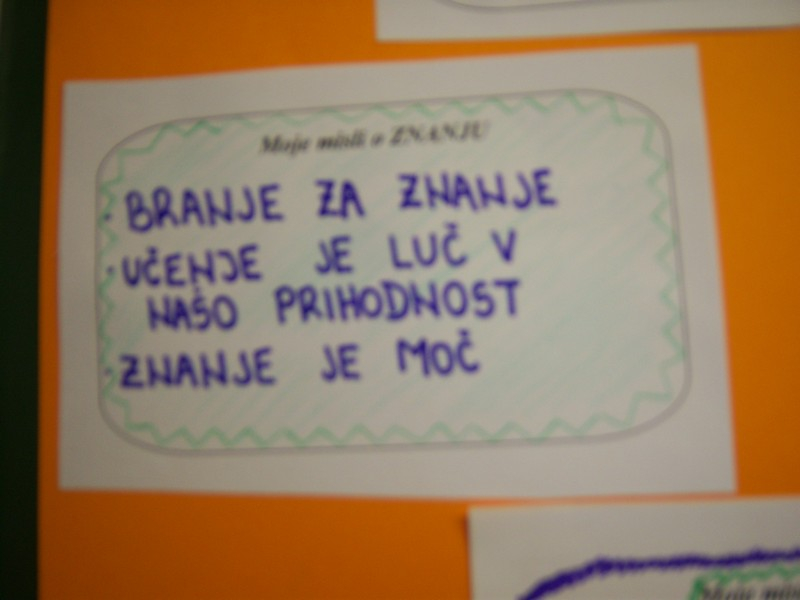 Moje misli o ZNANJU
· BRANJE ZA ZNANJE
· UČENJE JE LUČ V
NAŠO PRIHODNOST
· ZNANJE JE MOČ
Moje misli